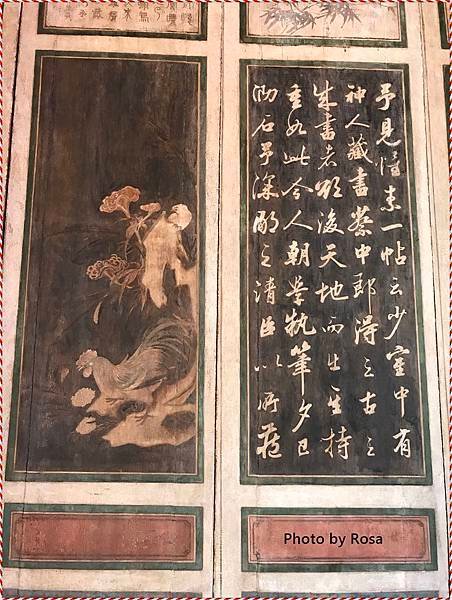 予見懷素一帖云少室中有
神人藏書蔡中郎得之古之
成書者欲後天地而出其持
重如此今人朝學執筆夕已
勒石予深鄙之清臣以所藏
Photo by Rosa